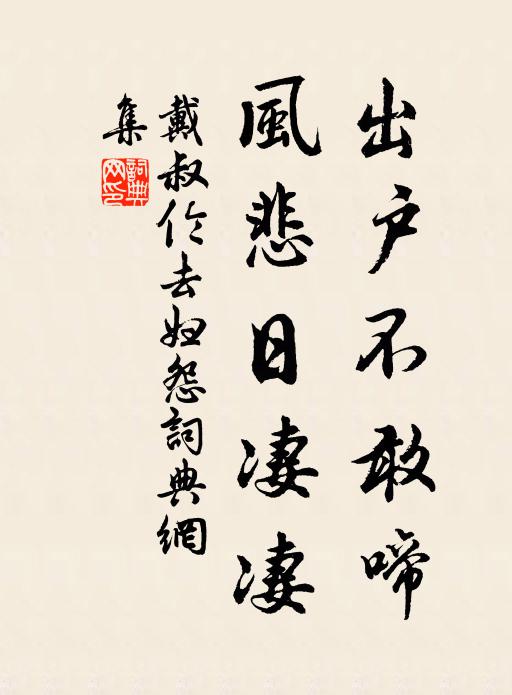 出户不敢啼
風悲日凄凄
戴叔伦去妇怨詞典網
集
詞典網印